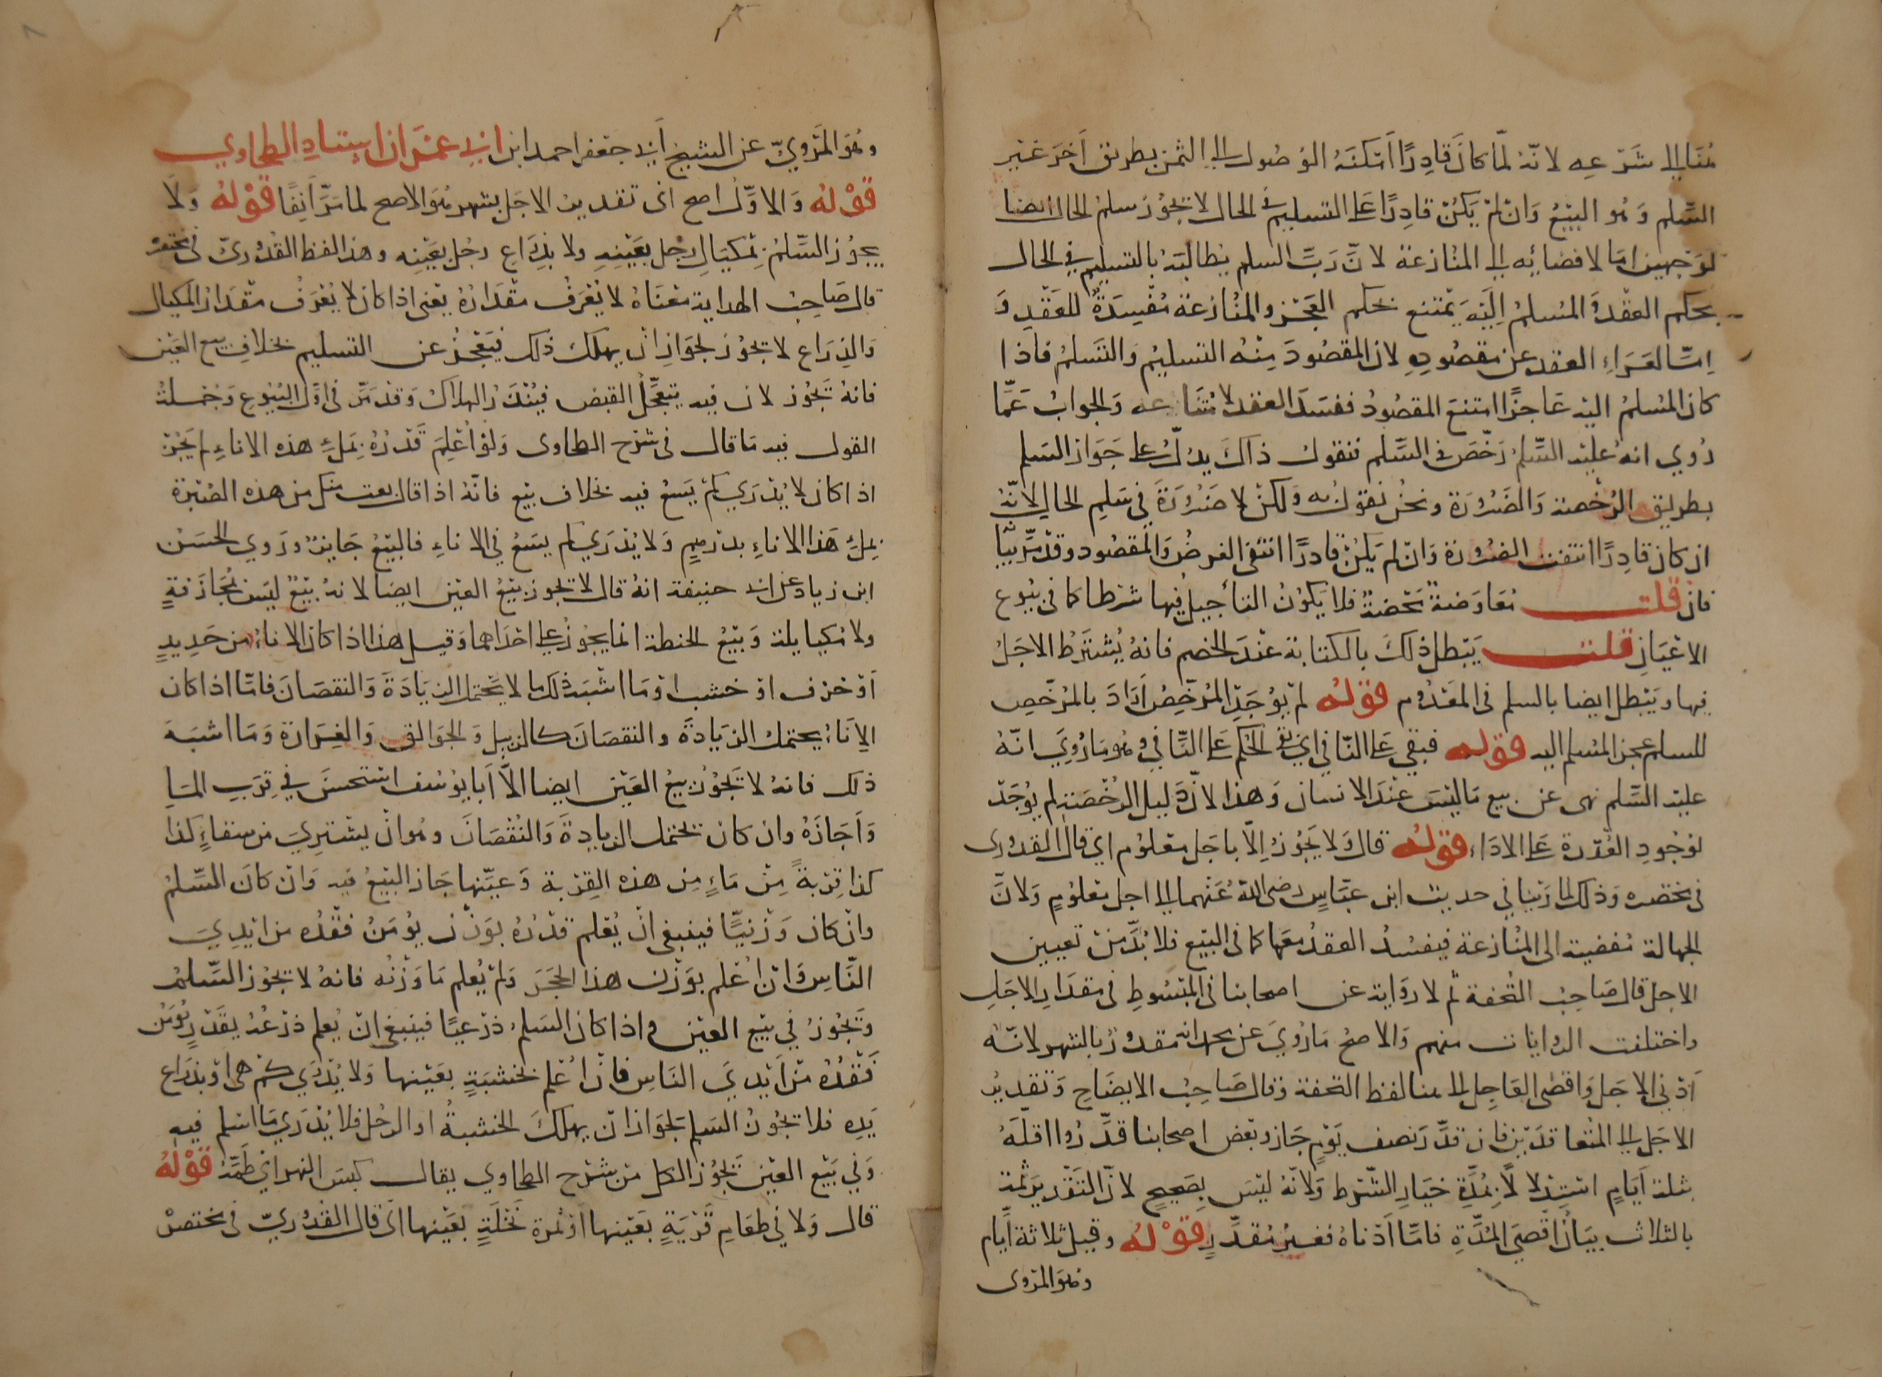 مُنَا في شَرْعِه لانّهُ لمّا كانَ قادِرًا أمكنَهُ الوُصُول الى الثمن بطريق آخرَ غَيْرِ
السَّلم وَهُو البَيْعُ وَانْ لمْ يَكُنْ قادِرًا على التسليمِ في الحال لا يجُوزُ سلمُ الحال ايضا
لوَجهين امّا لافضائِه الى المنُازعة لانّ رَبَّ السلم يطالبهُ بالتسليم في الحال
بحكم العقْد وَالمُسلمُ اليَهْ يَمْتنع بحكم العَجْز والمُنازعة مُفْسِدَةٌ للعَقْدِ وَ
امّا لعَرَاءِ العقد عن مقصُودِهِ لان المقصُودَ مِنْهُ التسليمُ وَالتَسلمُ فاذا
كان المُسلمُ اليْهِ عَاجزًا امتنعَ المقصُودُ ففسَدَ العقد لامتنَاعه وَالجوابُ عَمّا
رُوي انهُ عليْه السّلمُ رَخّصَ في السَّلم فنقول ذاكَ يدلّ على جَوَاز السَلم
بطريق الرُخْصة وَالضَرُورَة ونحنُ نقول به ولكنْ لا ضَرُورَةَ في سَلمِ الحالِ لانّهُ
ان كان قادِرًا انتفت الضرُورَة وَانْ لم يَكُنْ قادرًا انتفى الغرضُ وَالمقصُود وقدْ مرّ بيَانُها
فان قلت مُعَاوَضَةٌ مَحْضَةٌ فلا يكوُنُ التأجيلُ فيها شرْطا كما في بُيوع
الاعْيَانِ قلت يَبْطل ذلكَ بالكتابة عنْدَ الخصْمِ فانهُ يُشْترَطُ الاجَلُ
فيها وَيَبْطل ايضا بالسلم في المعْدُوم قوْلهُ لمْ يوُجَد المُرَخّصُ ارَادَ بالمُرَخّصِ
للسلم عجز المُسلم اليه قوْله فبقي على النّافي اي بقي الحكم على النَّافي وهُو مَا رُوِيَ انّهُ
عليْه السّلم نهى عن بيع مَا ليْسَ عنْدَ الانسان وَهذا لانّ دَليل الرُخْصَة لم يُوجَدْ
لوُجُودِ القُدْرَة على الادَاءِ قوْلهُ قال وَلا يَجُوزُ اِلاّ باجَل معْلوُم اي قال القدُوري
في مختصره وَذلك لما رَوَيْنا في حديث ابن عبّاسٍ رضي اللّهُ عَنهما الى اجل معْلوُمٍ وَلانّ
الجهالة مُفضية الى المُنازعة فيفسُدُ العقدُ معَها كما في البَيْع فلا بُدّ مِنْ تعيين
الاجل قال صَاحِبُ التُحْفة ثم لا روَاية عن اصحابنا في المبْسُوطِ في مقدَار الاجَل
واختلفت الروايات منهم وَالاصحُّ مَا رُويَ عن محمد انه مُقدّرٌ بالشهر لانّهُ
أدْنى الاجَل وَاقْصَى العَاجِل الى هنا لفظ التحفة وَقال صَاحِبُ الايضَاح وَتقديرُ
الاجَل الى المُتعاقدَيْن فان قدّرَ نصف يَوْمٍ جَازَ وبَعْض اصحابنا قدّرُوا اقلّهُ
بثلثة أيّامٍ اسْتِدْلالاً بمُدّةِ خيَارِ الشّرْط وَلانّهُ ليْسَ بِصَحِيحٍ لانّ التّقْديرَ ثمّة
بالثلاث بيَانُ اقْصَى المُدّةِ فامّا ادْناهُ فغيْرُ مُقدَّرٍ قوْلهُ وقيل ثلاثة أيّام
وهُوَ المَروى
وهُوَ المَرْويّ عن الشيخ أبي جعْفر احمد ابن ابي عمْرَان استاد الطحاوي
قوْلهُ وَالاوّلُ اصح اى تقدير الاجَل بشهر هُوَ الاصح لما مَرّ آنِفًا قوْلهُ وَلا
يجُوز السّلمُ بِمكيَال رجُل بعَيْنِهِ ولا بذِرَاع رجُل بعَيْنِه وهذا لفظ القُدُوريّ في مختصره
قال صَاحبُ الهداية مَعْناهُ لا يُعْرَفُ مقْدَارُهُ يعْنى اذا كان لا يُعْرَفُ مقْدَارُ المكيَال
وَالذِرَاع لا يجُوز لجوَاز انْ يهلك ذلك فيَعْجزُ عن التسليم بخلاف بيع العَيْن
فانهُ يَجُوز لان فيه يتعَجّلُ القبض فيُنْدَرُ الهلاكُ وَقدْ مَرّ في اوّل البُيُوع وَجُمْلة
القول فيه مَا قال في شرْح الطحاوي وَلوْ اُعْلِمَ قَدْرُهُ بمِلْءِ هذه الاناءِ لم يَجُزْ
اذا كان لا يُدْرَي كمْ يَسَعُ فيه بخلاف بيع فانّهُ اذا قال بعت منك من هذه الصُبْرَة
بمِلْءِ هذا الاناءِ بدرْهمٍ وَلا يُدْرَي كم يسَعُ في الاناءِ فالبيْعُ جَائزٌ وَرَوي الحسَنُ
ابن زياد عن ابي حنيفة انهُ قال لا يجُوز بيْعُ العَيْن ايضا لانهُ بَيْعٌ ليْسَ بمُجَازَفةٍ
ولا مُكيايلة وَبَيْعُ الحنطة انما يجوُزُ على احدَاهما وقيل هذا اذا كان الاناءُ من حَدِيدٍ
أوْ خزفٍ اوْ خشبٍ اوْ مَا اشبَهَ ذلك ما لا يَحْتمل الزيَادَةَ وَالنقصَانَ فامّا اذا كان
الإنَاءُ يحتمل الزيَادَةَ والنقصَانَ كالزبيل وَالجَوَالق وَالغِرَارَة وَمَا اشبَهَ
ذلك فانهُ لا يَجُوُزُ بيعُ العَيْن ايضا الاّ أبَا يوُسُف استحسَنَ في قِرَبِ الماءِ
وَأجَازَهُ وان كان يحتمل الزيادةَ وَالنُقْصَانَ وهُو انْ يشتريَ من سقاءٍ كذا
كذا قِرْبةً مِنْ مَاءٍ مِن هذه القِرْبة وَعيّنها جَازَ البَيْعُ فيه وَانْ كانَ المُسْلمُ
وانْ كان وَزْنيّا فينبغى انْ يُعْلم قدْرُهُ بوَزْن يُوْمَنُ فَقْدُه من ايْدِيَ
النّاسِ وَان اُعْلم بوَزْن هذا الحجَرَ وَلمْ يُعلم مَا وَزْنُه فانهُ لا يجُوز السّلم
وَيَجُوزُ في بيْع العيْن وَاذا كان السَلمُ ذرْعيّا فينبغى انْ يُعلم ذرْعُهُ بقَدْرٍ يُوْمَنُ
فَقْدُهُ مِنْ أيْدِيَ النَاسِ فانْ اُعْلم بخشبَةٍ بعَيْنها وَلا يُدْرَي كمْ هى اوْ بذِرَاع
يَدِه فلا يجُوزُ السَلمُ لجَوَاز انْ يهلكَ الخشبةُ او الرجُل فلا يُدْرَي مَا اسْلم فيه
وَفي بَيْع العَيْن يَجُوز الكل مِنْ شَرْح الطحاوي يقال كبَسَ النهر اي طَمّهُ قوْلهُ
قال وَلا في طعَامِ قَرْيَةٍ بعَيْنها اوْ ثمرَة نَخْلَةٍ بعَيْنها اى قال القدُوريّ في مختصرهْ